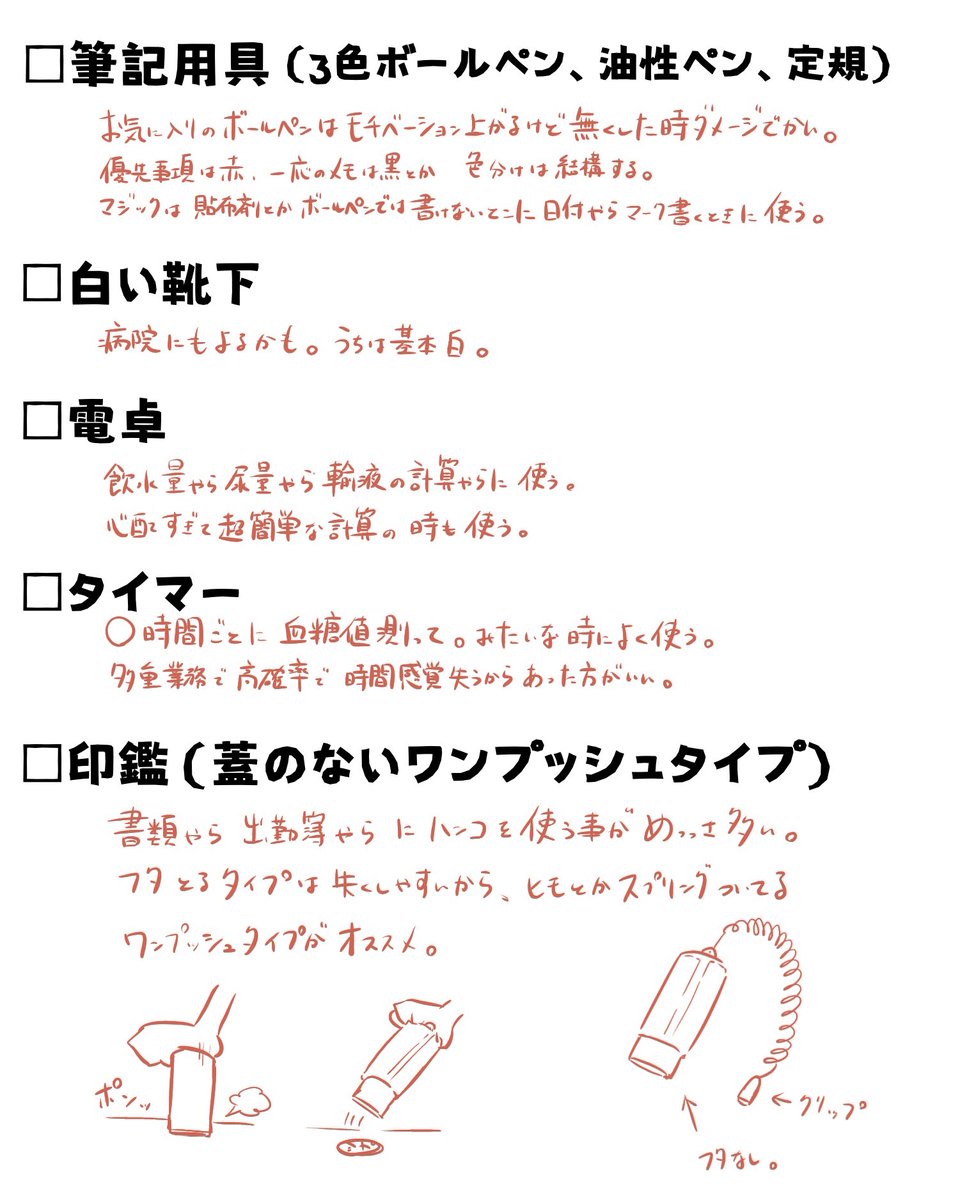 □筆記用具(3色ボールペン、油性ペン、定規)
お気に入りのボールペンはモチベーション上がるけど無くした時ダメージでかい。
優先事項は赤、一応のメモは黒とか 色分けは結構する。
マジックは貼布剤とかボールペンでは書けないとこに日付やらマーク書くときに使う。
□白い靴下
病院にもよるかも。うちは基本白。
□電卓
飲水量やら尿量やら輸液の計算やらに使う。
心配すぎて超簡単な計算の時も使う。
□タイマー
○時間ごとに血糖値測って。みたいな時によく使う。
多重業務で高確率で時間感覚失うからあった方がいい。
□印鑑(蓋のないワンプッシュタイプ)
書類やら出勤簿やらにハンコを使う事がめっっさ多い。
フタとるタイプは失くしやすいから、ヒモとかスプリングついてる
ワンプッシュタイプがオススメ。
ポンッ
←クリップ
フタなし。